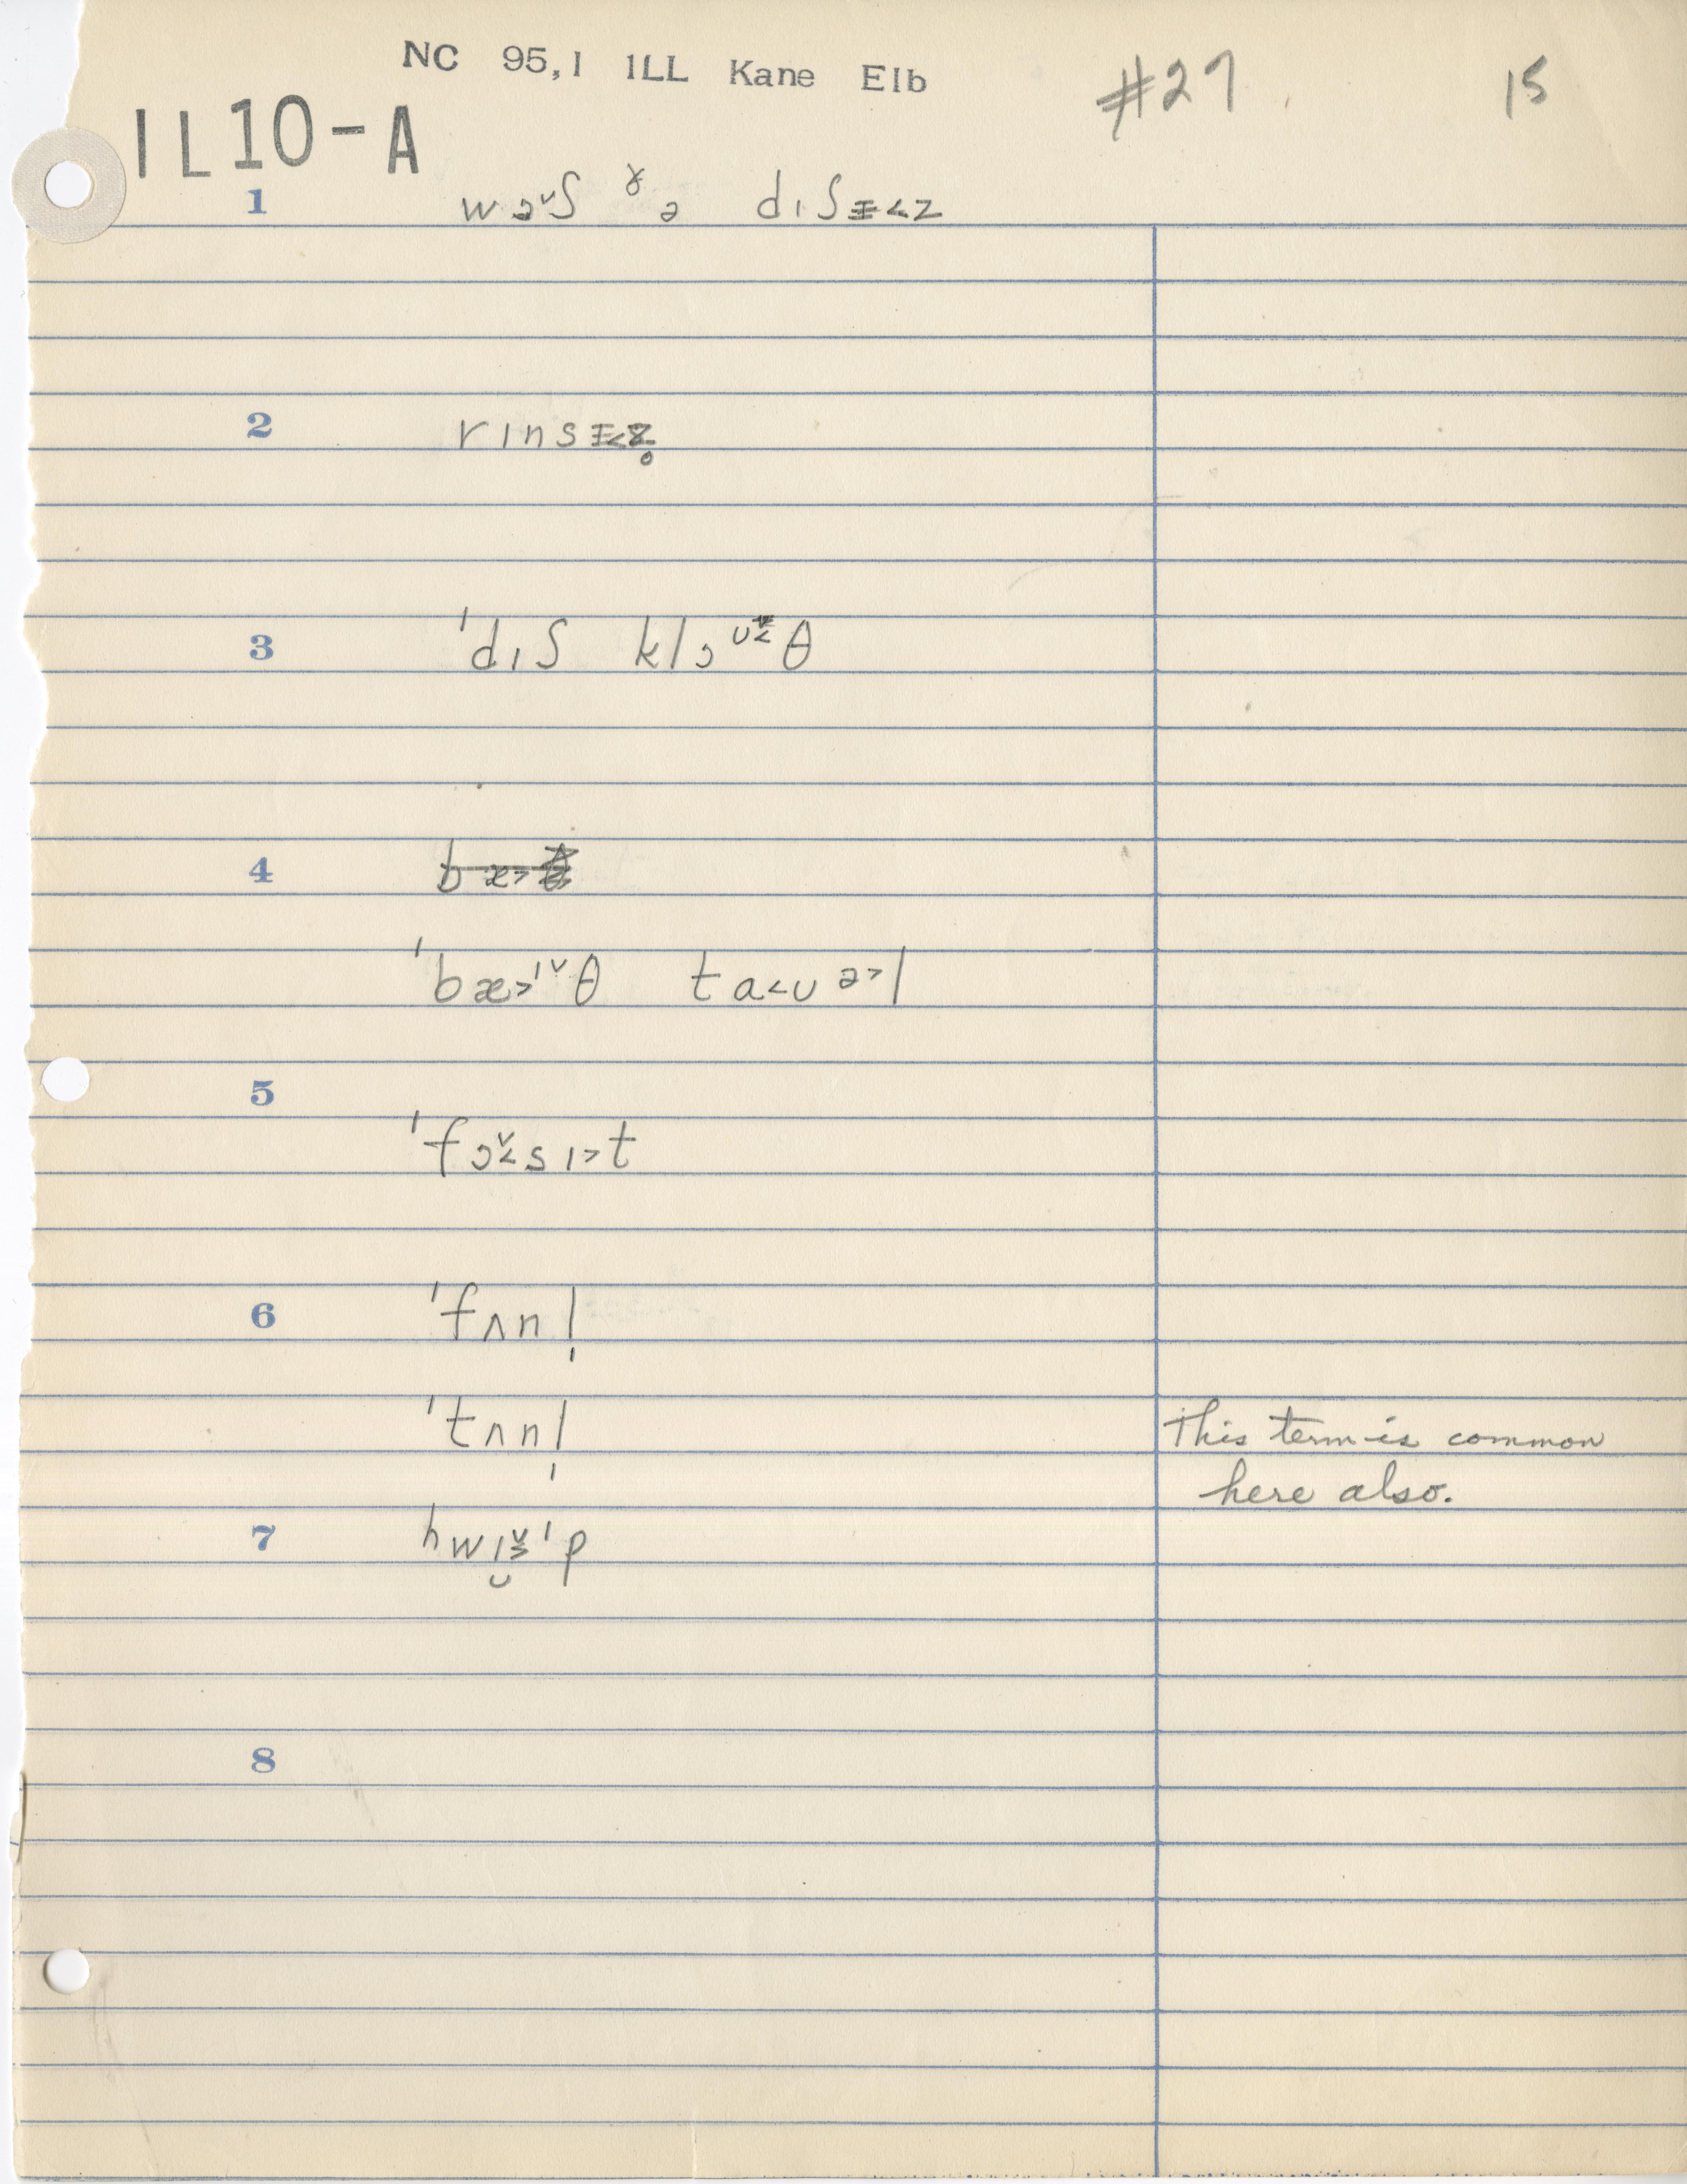 NC 95,1 ILL Kane Elb #27 15
IL10-A
1 wɔˇʃ ɤə dɪʃɨ<z
2 rɪnsɨ<z̥
3 'dɪʃ klɔᶷθ
4
'bæ>ᶦˇθ ta<ʊə>l
5
'fɔˇ<sɪ>t
6 'fʌnl̩
'tʌnl̩ This term is common
here also.
7 hwɪp
8